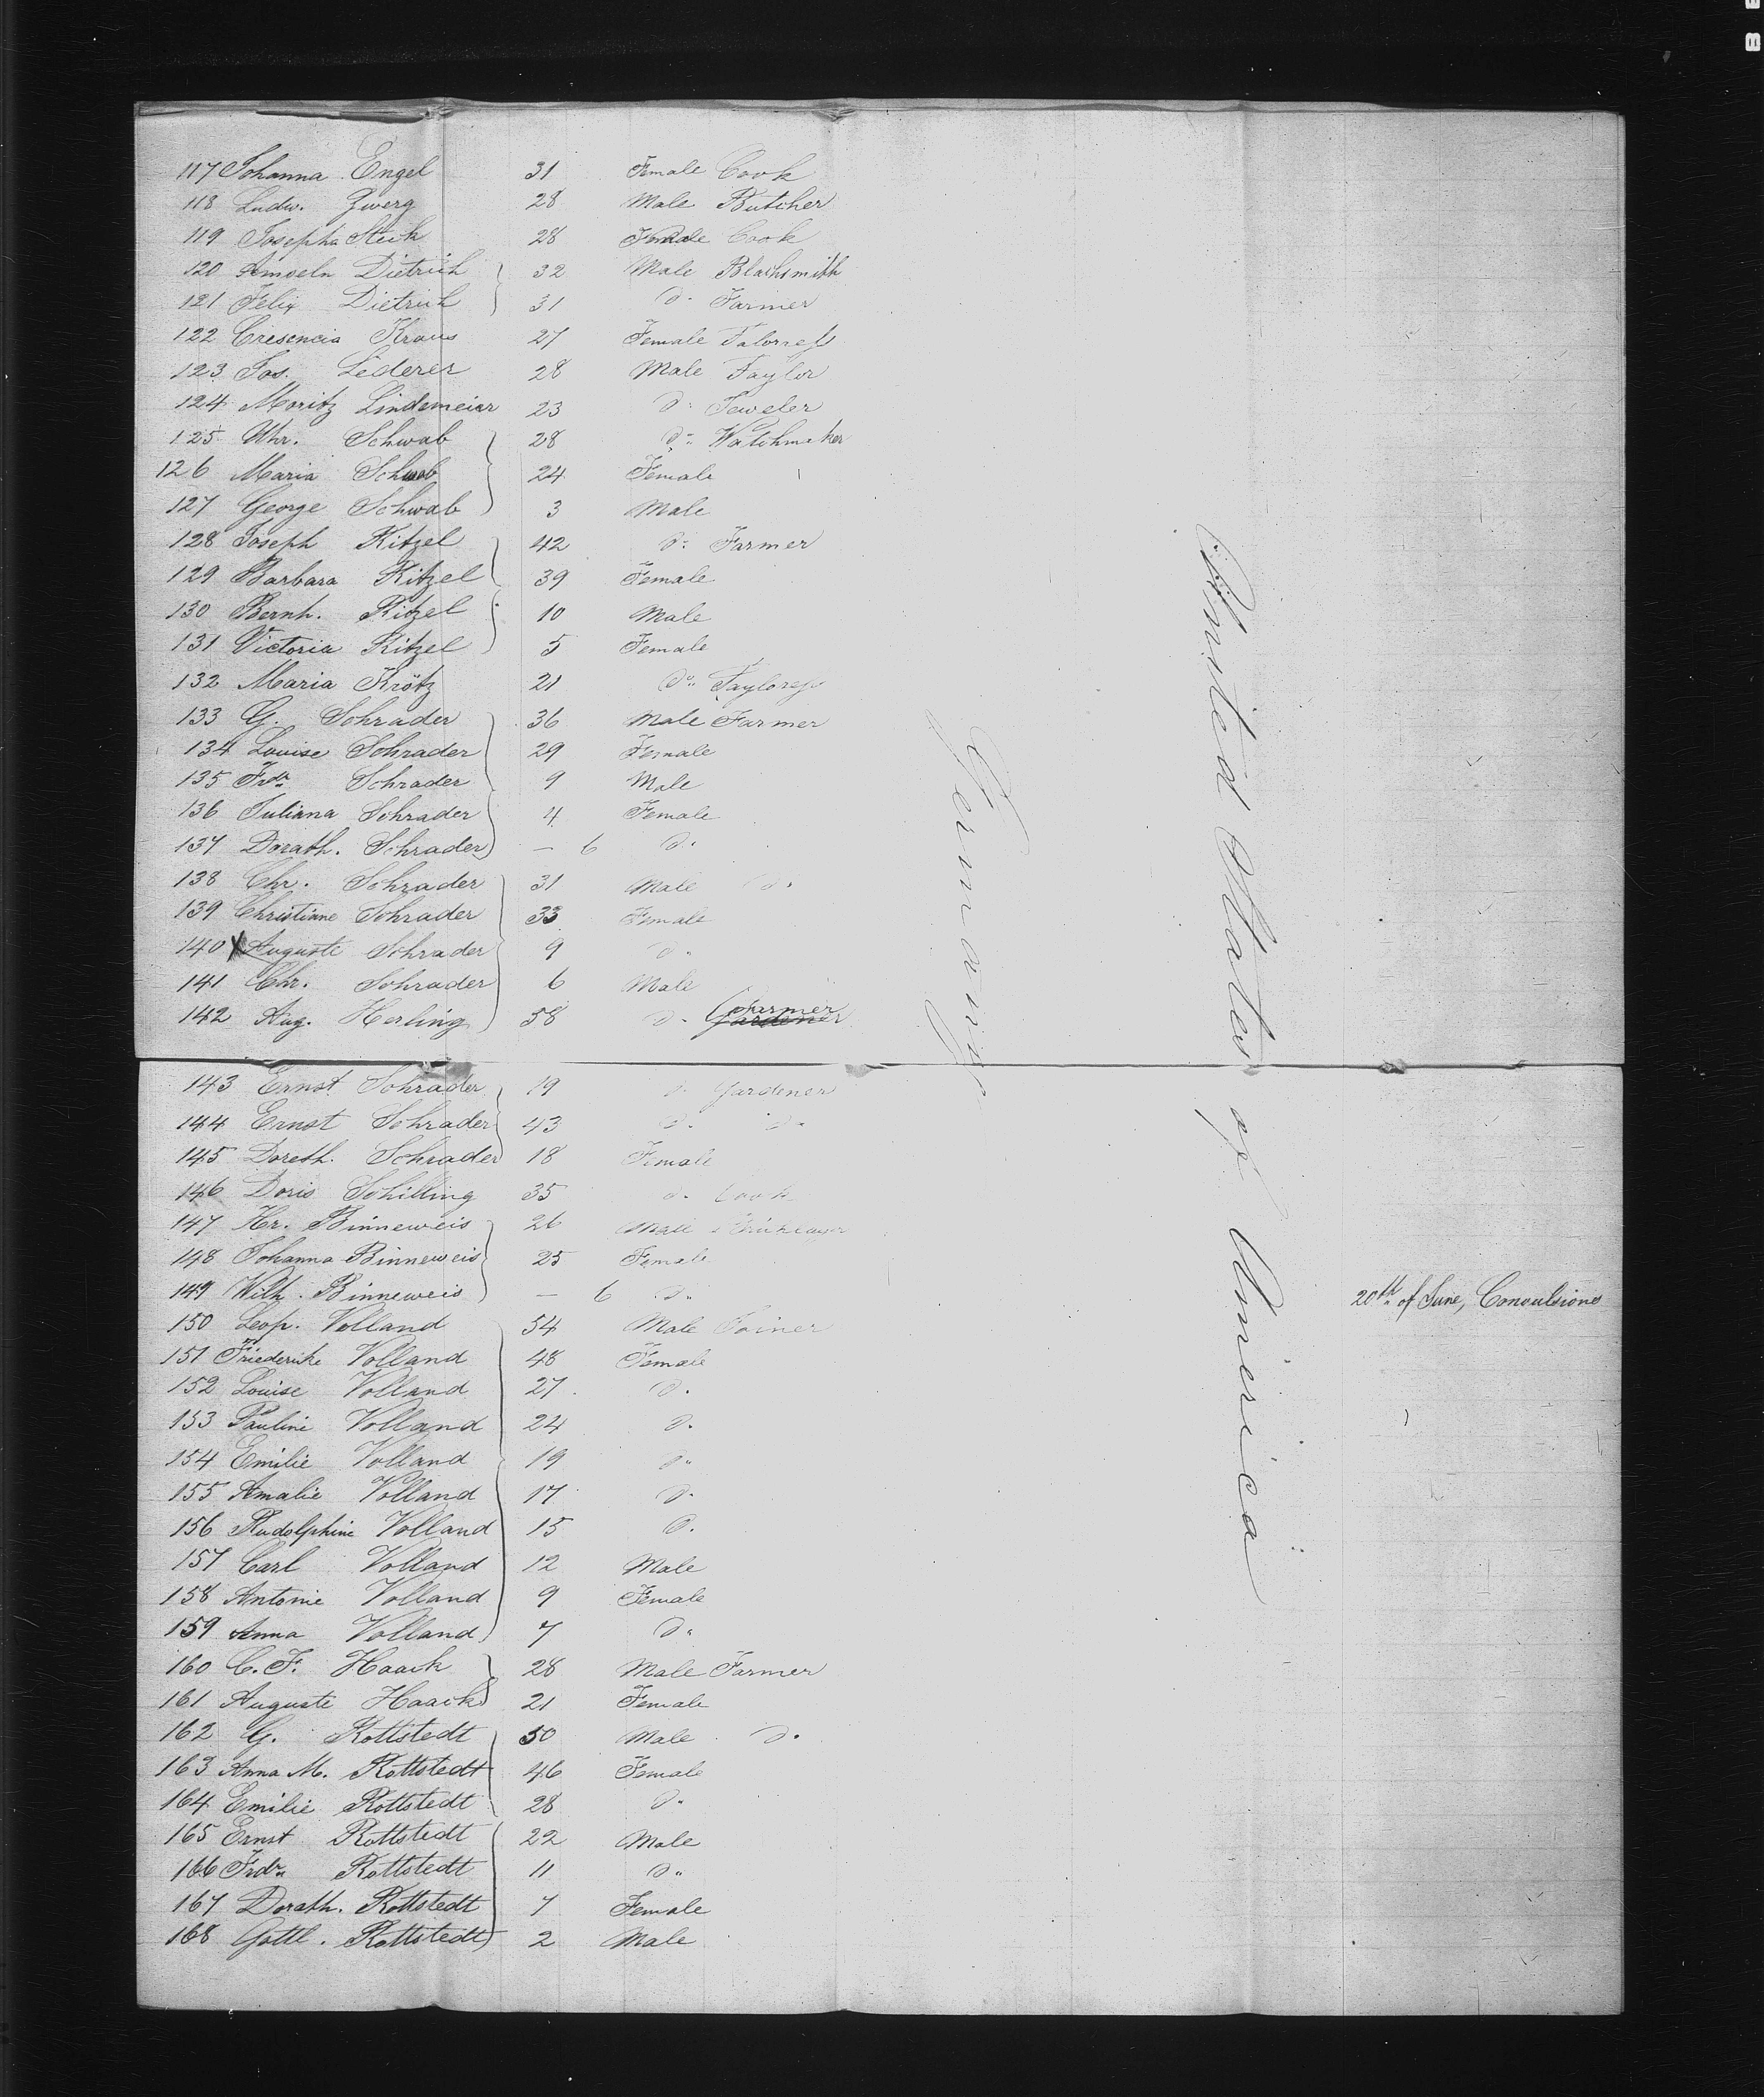 117 Johanna Engel 31 Female Cook
118 Ludw. Zwerg 28 Male Butcher
119 Josepha 28 Female Cook
120 Dietrich 32 Male Blacksmith
121 Felix Dietrich 31 do. Farmer
122 Cresencia Kraus 27 Female
123 Jos. Lederer 28 Male Taylor
124 Moritz Lindemeier 23 do. Jeweler
125 Schwab 28 do. Watchmaker
126 Maria Schwab 24 Female
127 George Schwab 3 Male
128 Joseph Kitzel 42 do. Farmer
129 Barbara Kitzel 39 Female
130 Bernh. Kitzel 10 Male
131 Victoria Kitzel 5 Female
132 Maria Krötz 21 do. Tayloress
133 G. Schrader 36 Male Farmer
134 Louise Schrader 29 Female
135 Frdr. Schrader 9 Male
136 Juliana Schrader 4 Female
137 Dorath. Schrader — 6 do.
138 Chr. Schrader 31 Male do.
139 Christinne Schrader 33 Female
140 X Auguste Schrader 9 do.
141 Chr. Schrader 6 Male
142 Aug. Herling 58 do. Farmer Gardener
143 Ernst Schrader 19 do. Gardener
144 Ernst Schrader 43 do. do.
145 Doreth. Schrader 18 Female
146 Doris Schilling 35 do. Cook
147 Hr. Binneweis 26 Male
148 Johanna Binneweis 25 Female
149 Wilh. Binneweis — 6 do. 20th of June, Convulsions
150 Leop. Volland 54 Male Joiner
151 Friederike Volland 48 Female
152 Louise Volland 27 do.
153 Pauline Volland 24 do.
154 Emilie Volland 19 do.
155 Amalie Volland 17 do.
156 Rudolphine Volland 15 do.
157 Carl Volland 12 Male
158 Antonie Volland 9 Female
159 Anna Volland 7 do.
160 C. F. Haack 28 Male Farmer
161 Auguste Haack 21 Female
162 G. Rottstedt 50 Male do.
163 Anna M. Rottstedt 46 Female
164 Emilie Rottstedt 28 do.
165 Ernst Rottstedt 22 Male
166 Frdr. Rottstedt 11 do.
167 Dorath. Rottstedt 7 Female
168 Gottl. Rottstedt 2 Male
Germany
United States of America